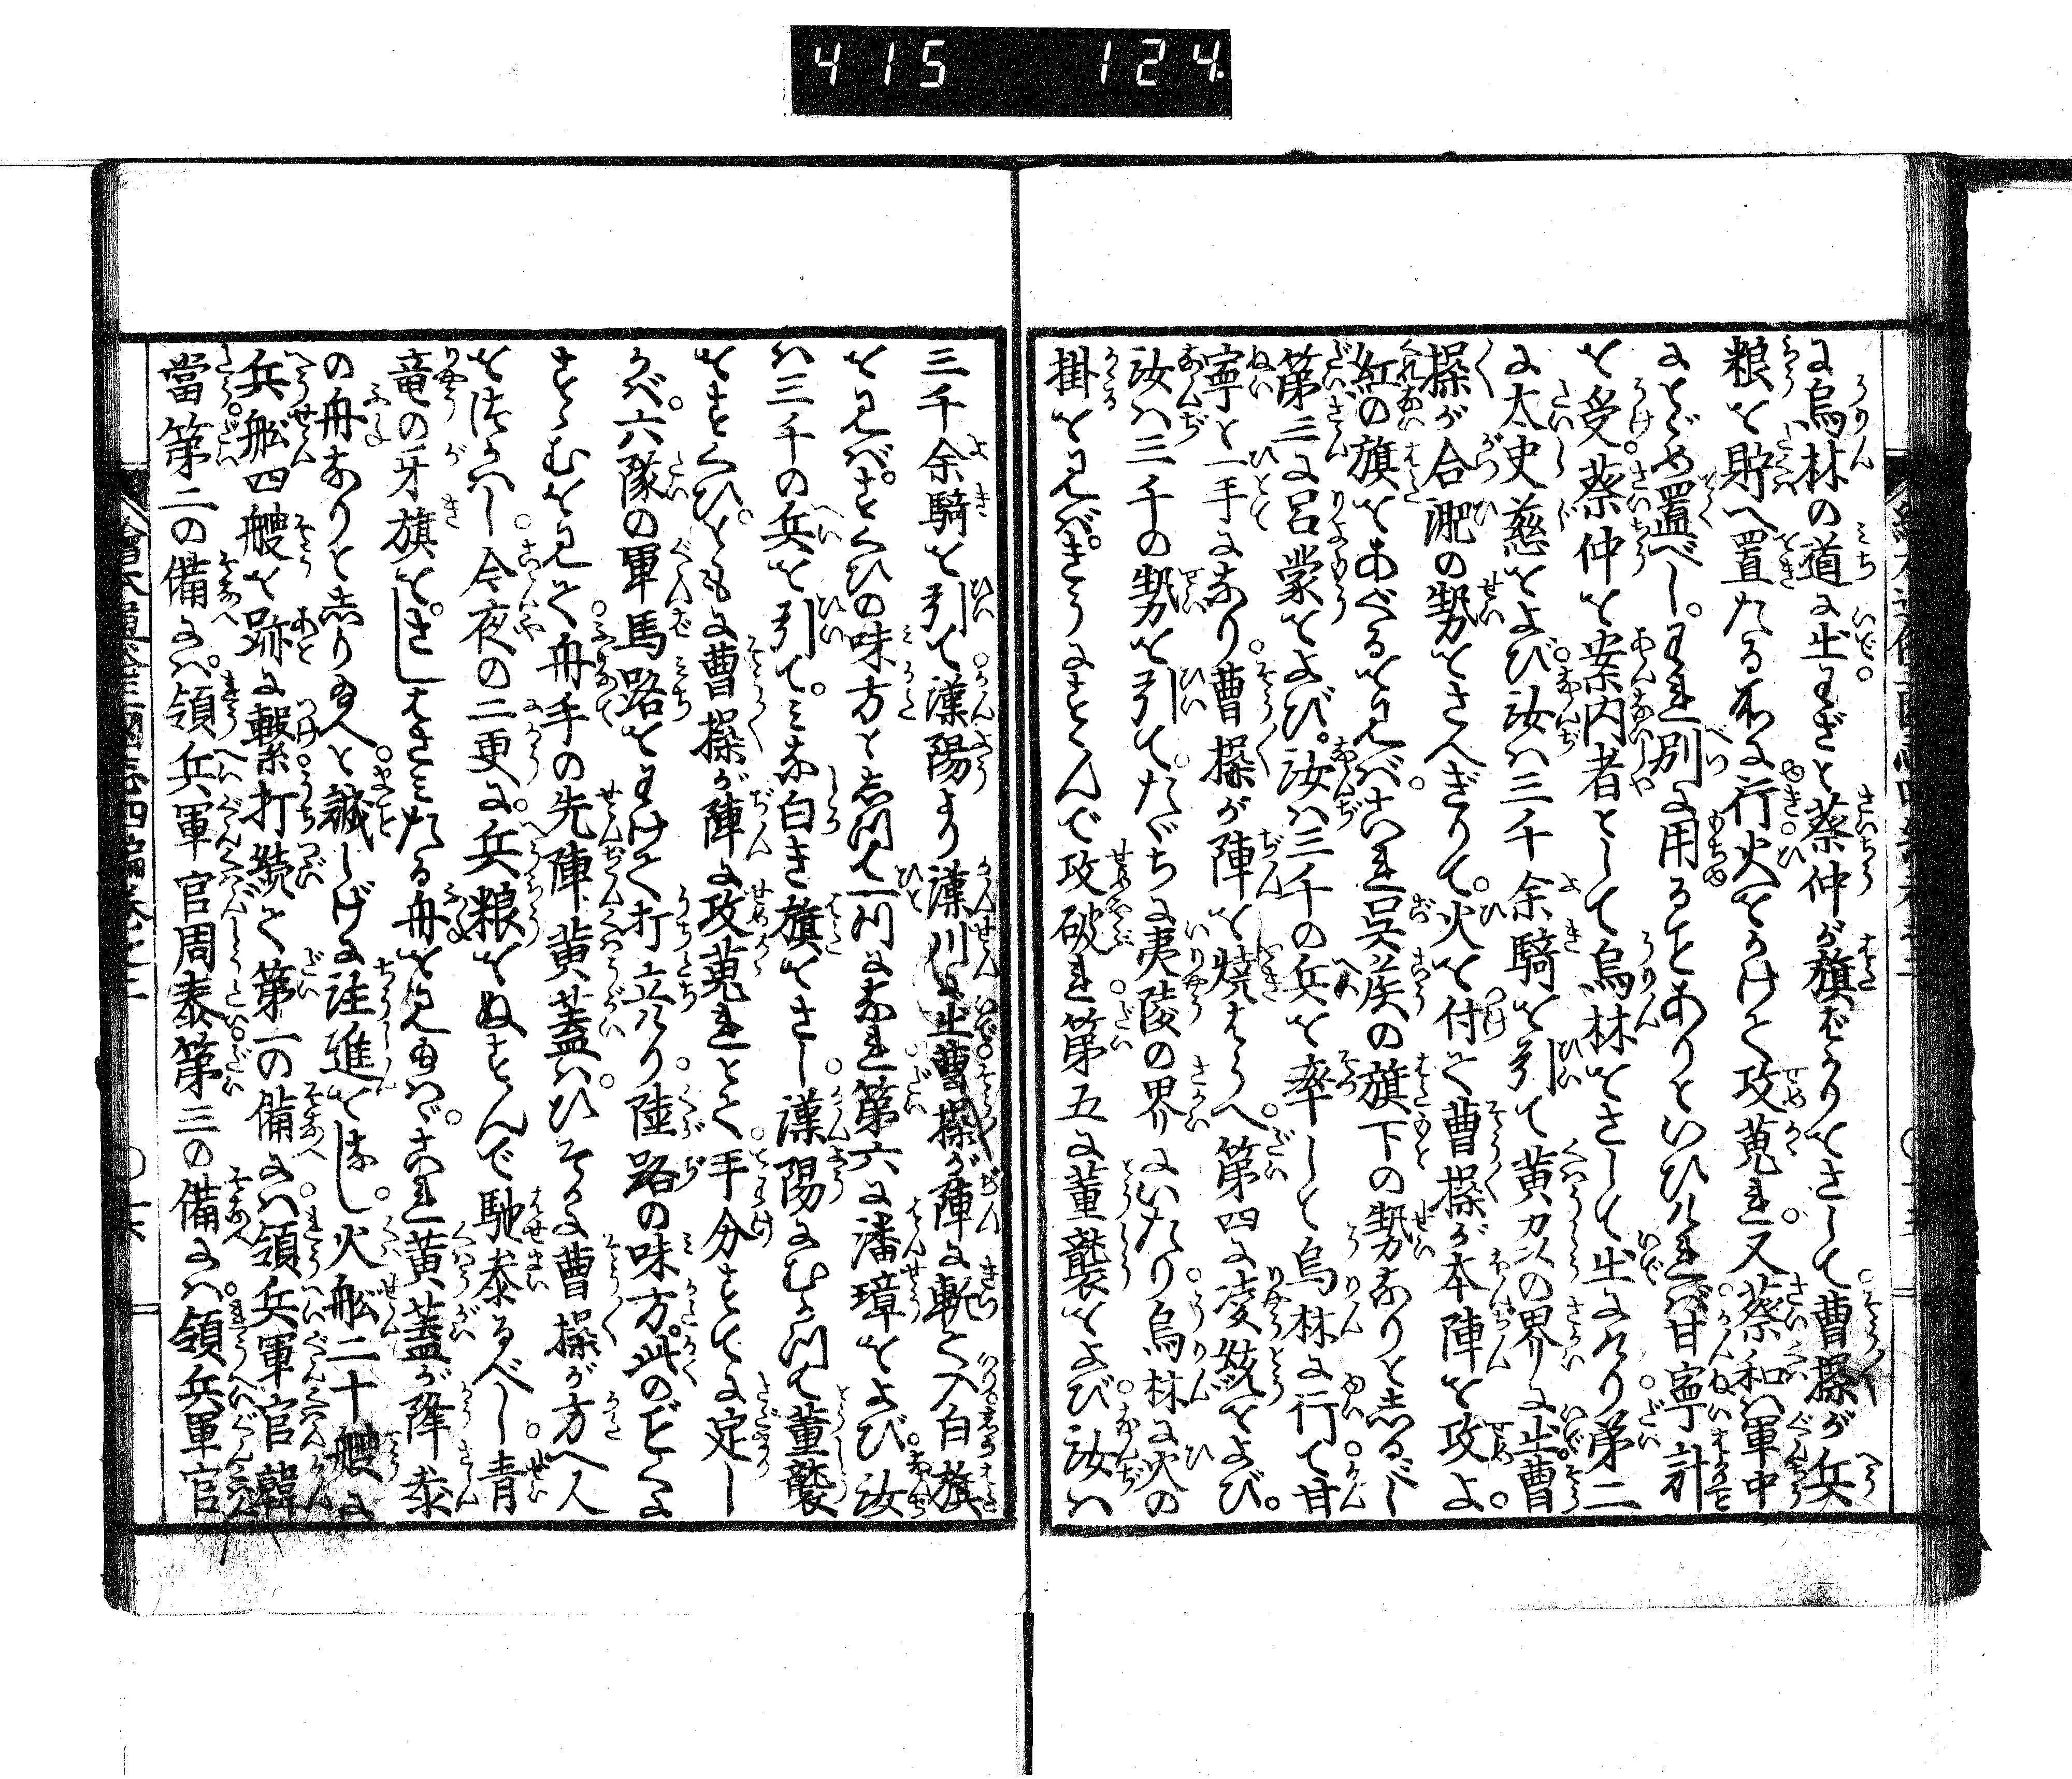 415 124
に烏林の道に出わざと蔡仲が旗ばかりをさして曹操が兵
粮を貯へ置たる所に行火をかけて攻蒐れ又蔡和は軍中
にとゞめ置べしわれ別に用ることありといひければ甘寧計
を受蔡仲を案内者として烏林をさして出にけり第二
に太史慈をよび汝は三千余騎を引て黄刕の界に出曹
操が合淝の勢をさへぎりて火を付て曹操が本陣を攻よ
紅の旗をあぐるを見ばこれ呉侯の旗下の勢なりと志るべし
第三に呂蒙をよび汝は三千の兵を率して烏林に行て甘
寧と一手になり曹操が陣を焼はらへ第四に凌統をよび
汝は三千の勢を引てたゞちに夷陵の界にいたり烏林に火の
掛を見ばきうにすゝんで攻破れ第五に董襲をよび汝は
三千余騎を引て漢陽より漢川に出曹操が陣に斬て入白旗
を見ばすくひの味方と志つて一つになれ第六に潘璋をよび汝
は三千の兵を引てみな白き旗をさし漢陽にむかつて董襲
をすくひともに曹操が陣に攻蒐れとて手分すでに定し
かべ六隊の軍馬路をわけて打立けり陸路の味方此のごとくに
すゝむを見て舟手の先陣黄蓋はひそかに曹操が方へ人
をつかへし今夜の二更に兵粮をぬすんで馳参るべし青
竜の牙旗をさしはさみたる舟を見ゐはゞこれ黄蓋が降参
の舟ありと志りゐへと誠しげに註進をなし火舩二十艘に
兵舩四艘を跡に繋打続て第一の備には領兵軍官韓
當第二の備には領兵軍官周泰第三の備には領兵軍官